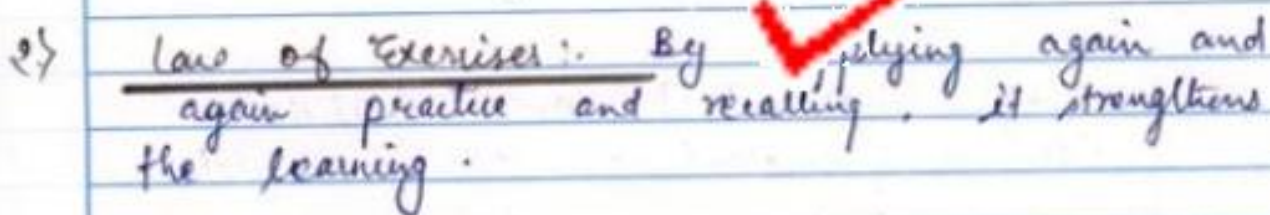 2) Law of Exercises :. By applying again and
again practice and recalling, it strengthens
the learning.